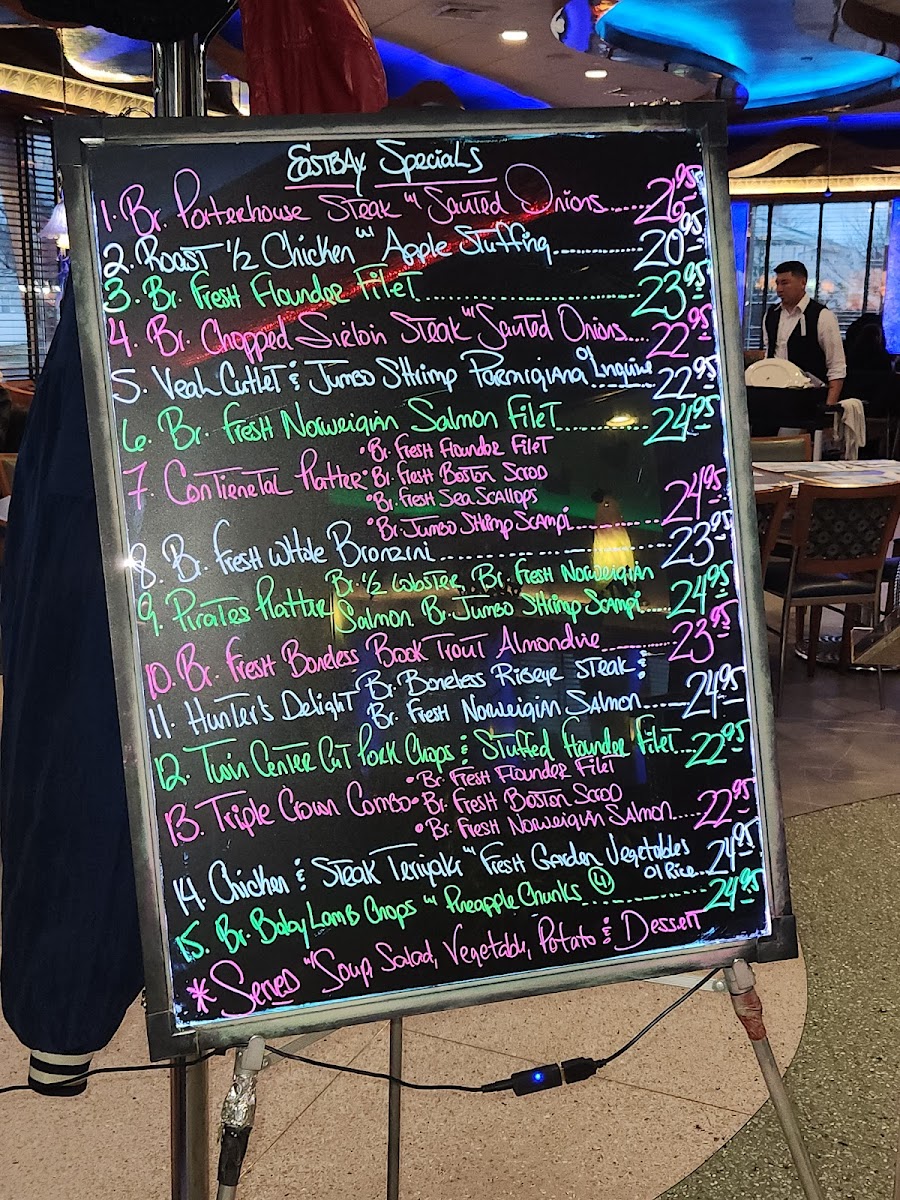 EastBay Specials
1. Br. Porterhouse Steak w/ Sauted Onions.....26.95
2. Roast 1/2 Chicken w/ Apple Stuffing.....20.95
3. Br. Fresh Flounder Filet.....23.95
4. Br. Chopped Sirloin Steak w/ Sauted Onions.....22.95
5. Veal Cutlet & Jumbo Shrimp Parmigiana o/ Linguine 22.95
6. Br. Fresh Norweigian Salmon Filet.....24.95
7. Contienetal Platter • Br. Fresh Flounder Filet
• Br. Fresh Boston Scrod
• Br. Fresh Sea Scallops
• Br. Jumbo Shrimp Scampi.....24.95
8. Br. Fresh Whole Bronzini.....23.95
9. Pirates Platter Br. 1/2 Lobster, Br. Fresh Norweigian
Salmon, Br. Jumbo Shrimp Scampi.....24.95
10. Br. Fresh Boneless Brook Trout Almondine.....23.95
11. Hunter's Delight Br. Boneless Ribeye Steak &
Br. Fresh Norweigian Salmon.....24.95
12. Twin Center Cut Pork Chops & Stuffed Flounder Filet...22.95
13. Triple Crown Combo • Br. Fresh Flounder Filet
• Br. Fresh Boston Scrod
• Br. Fresh Norweigian Salmon.....22.95
14. Chicken & Steak Teriyaki w/ Fresh Garden Vegetables
o/ Rice...24.95
15. Br. Baby Lamb Chops w/ Pineapple Chunks (4).....24.95
* Served w/ Soup, Salad, Vegetable, Potato & Dessert